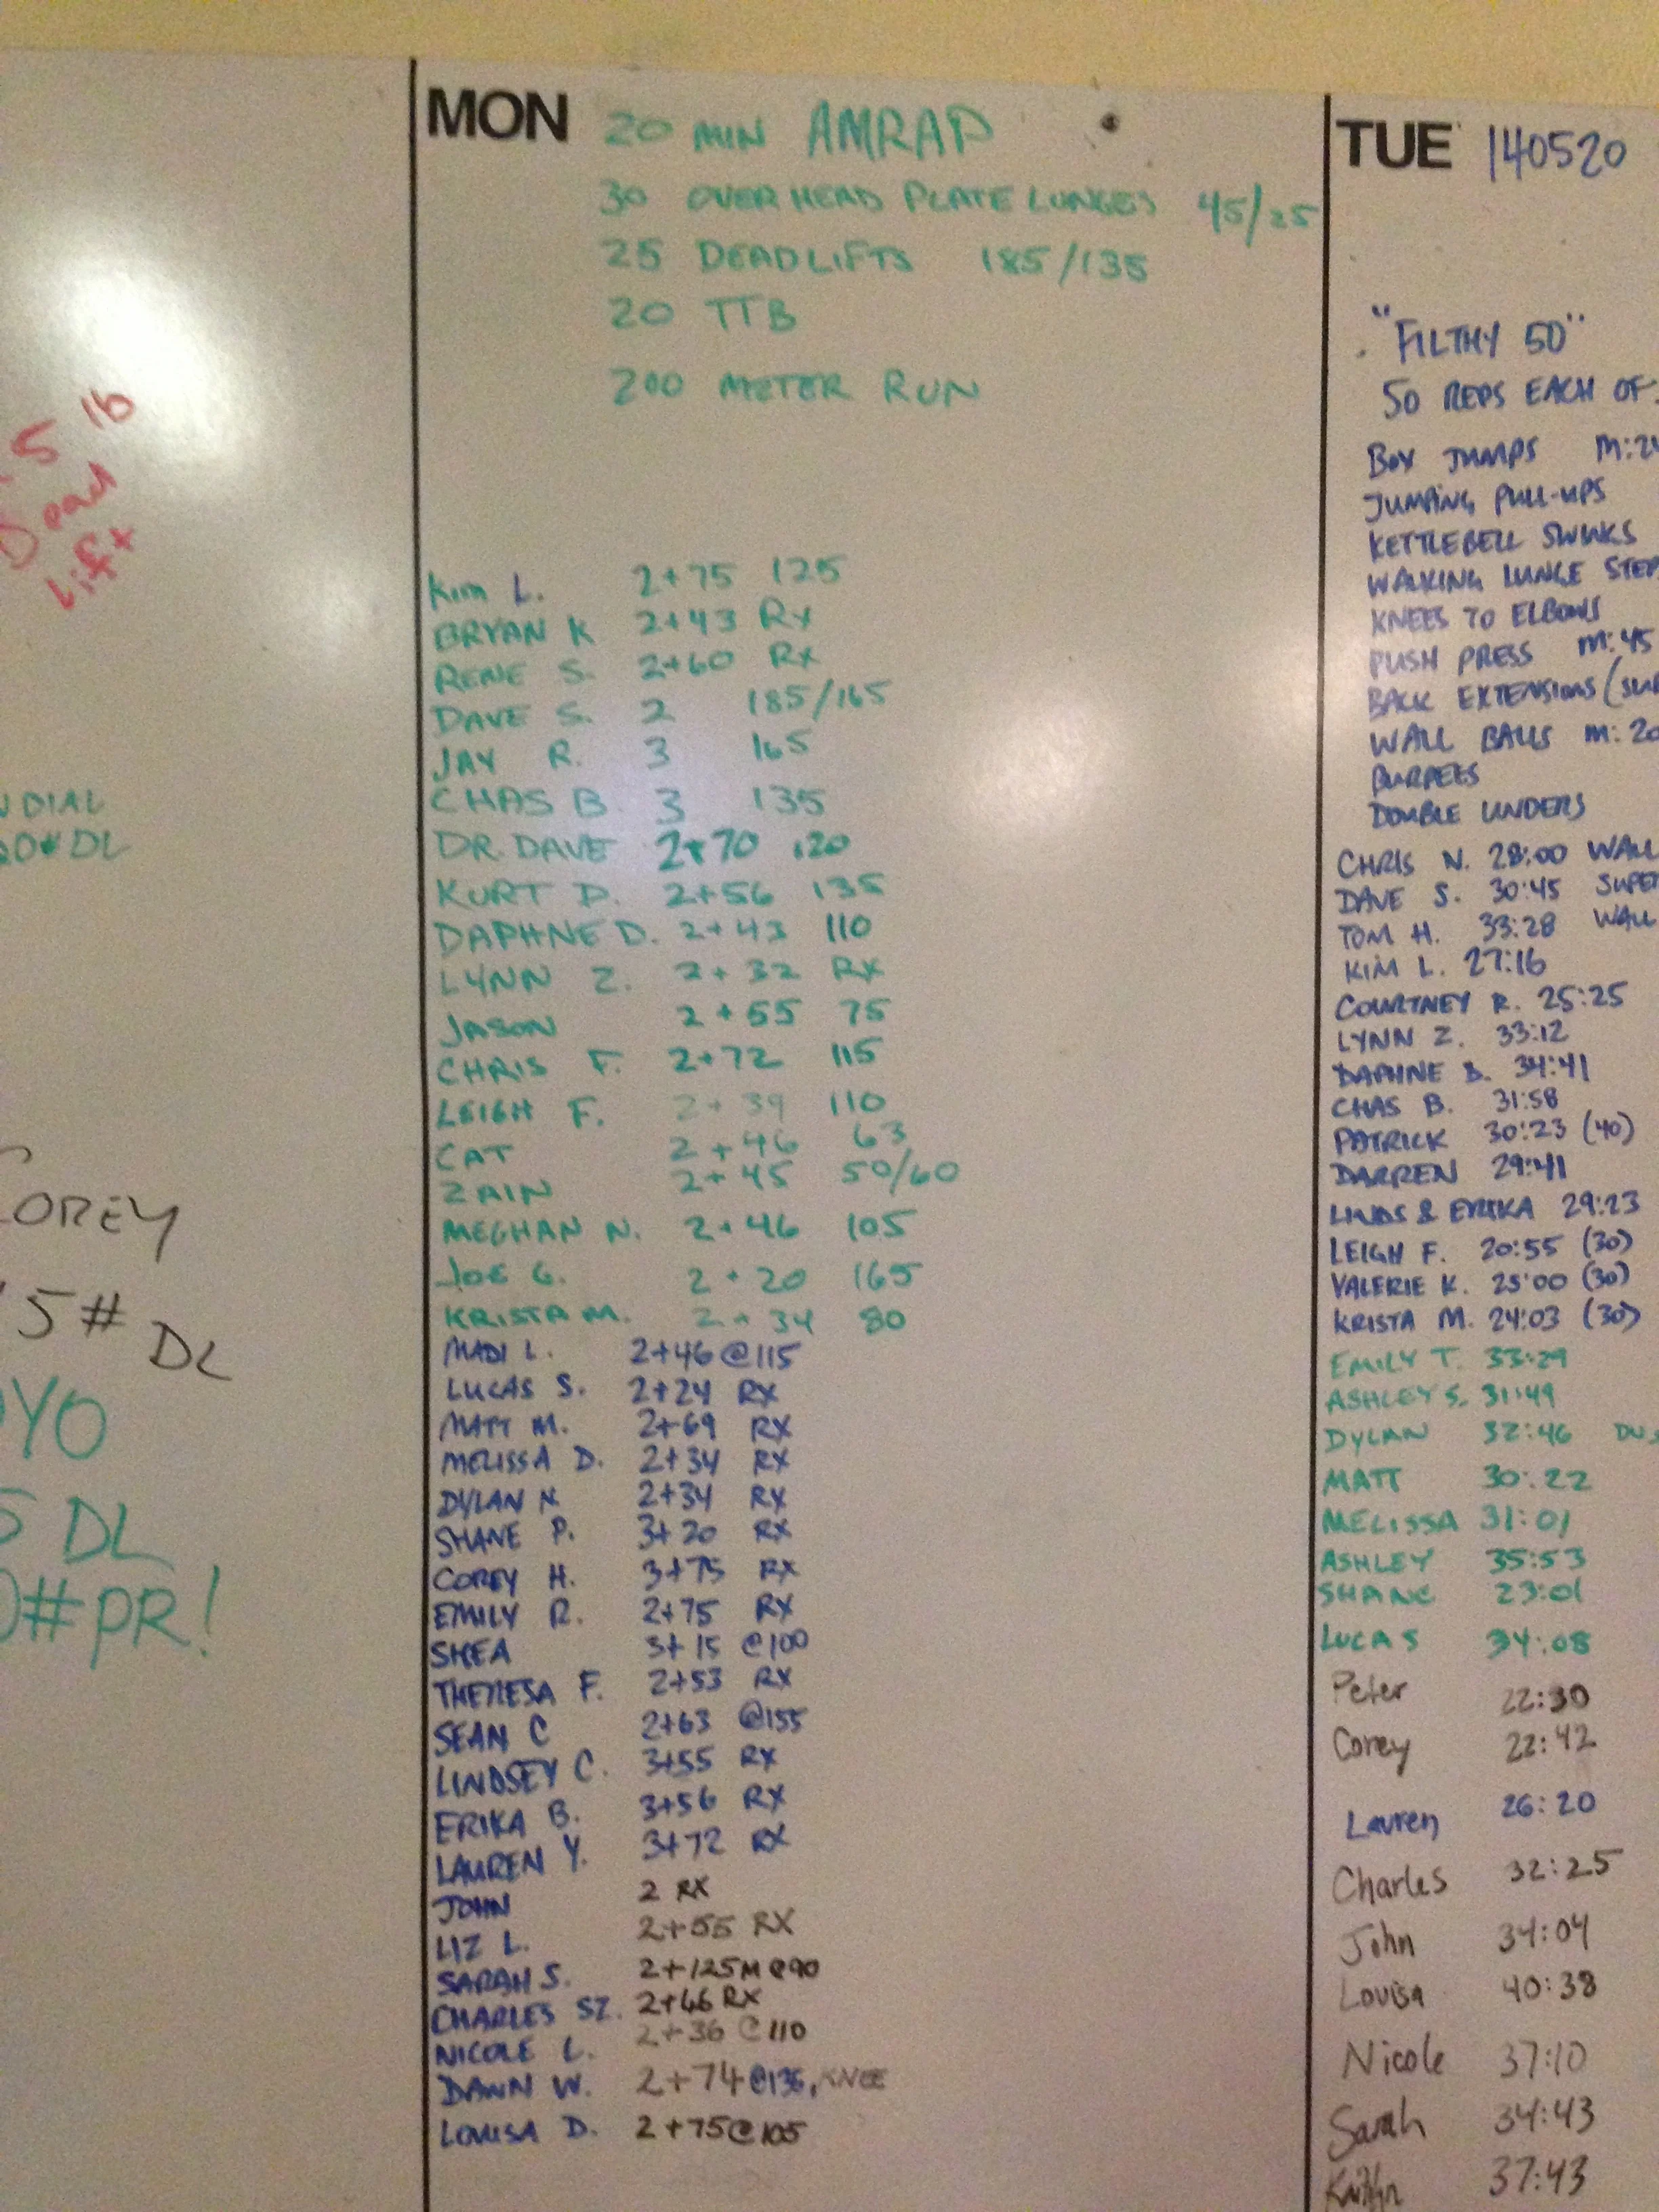 5 lb
Dead
Lift
DIAL
DL
COREY
5# DL
YO
5 DL
0#PR!
MON 20 MIN AMRAP
30 OVERHEAD PLATE LUNGES 45/25
25 DEADLIFTS 185/135
20 TTB
200 METER RUN
Kim L. 2+75 125
BRYAN K 2+43 RX
RENE S. 2+60 RX
DAVE S. 2 185/165
JAY R. 3 165
CHAS B. 3 135
DR. DAVE 2+70 120
KURT D. 2+56 135
DAPHNE D. 2+43 110
LYNN Z. 2+32 RX
JASON 2+55 75
CHRIS F. 2+72 115
LEIGH F. 2+39 110
CAT 2+46 63
ZAIN 2+45 50/60
MEGHAN N. 2+46 105
JOE G. 2+20 165
KRISTA M. 2+34 80
MADI L. 2+46 @115
LUCAS S. 2+24 RX
MATT M. 2+69 RX
MELISSA D. 2+34 RX
DYLAN N. 2+34 RX
SHANE P. 3+20 RX
COREY H. 3+75 RX
EMILY R. 2+75 RX
SHEA 3+15 @100
THERESA F. 2+53 RX
SEAN C 2+63 @155
LINDSEY C. 3+55 RX
ERIKA B. 3+56 RX
LAUREN Y. 3+72 RX
JOHN 2 RX
LIZ L. 2+55 RX
SARAH S. 2+125M @90
CHARLES SZ. 2+46 RX
NICOLE L. 2+36 @110
DAWN W. 2+74 @135, KNEE
LOUISA D. 2+75 @105
TUE 140520
"FILTHY 50"
50 REPS EACH OF:
BOX JUMPS M:24
JUMPING PULL-UPS
KETTLEBELL SWINGS
WALKING LUNGE STEPS
KNEES TO ELBOWS
PUSH PRESS M:45
BACK EXTENSIONS (SUP
WALL BALLS M:20
BURPEES
DOUBLE UNDERS
CHRIS N. 28:00 WALL
DAVE S. 30:45 SUPER
TOM H. 33:28 WALL
KIM L. 27:16
COURTNEY R. 25:25
LYNN Z. 33:12
DAPHNE D. 34:41
CHAS B. 31:58
PATRICK 30:23 (40)
DARREN 29:41
LINDS & ERIKA 29:23
LEIGH F. 20:55 (30)
VALERIE K. 25:00 (30)
KRISTA M. 24:03 (30)
EMILY T. 33:29
ASHLEY S. 31:49
DYLAN 32:46 DU
MATT 30:22
MELISSA 31:01
ASHLEY 35:53
SHANE 23:01
LUCAS 34:08
Peter 22:30
Corey 22:42
Lauren 26:20
Charles 32:25
John 34:04
Louisa 40:38
Nicole 37:10
Sarah 34:43
Kaitlyn 37:43